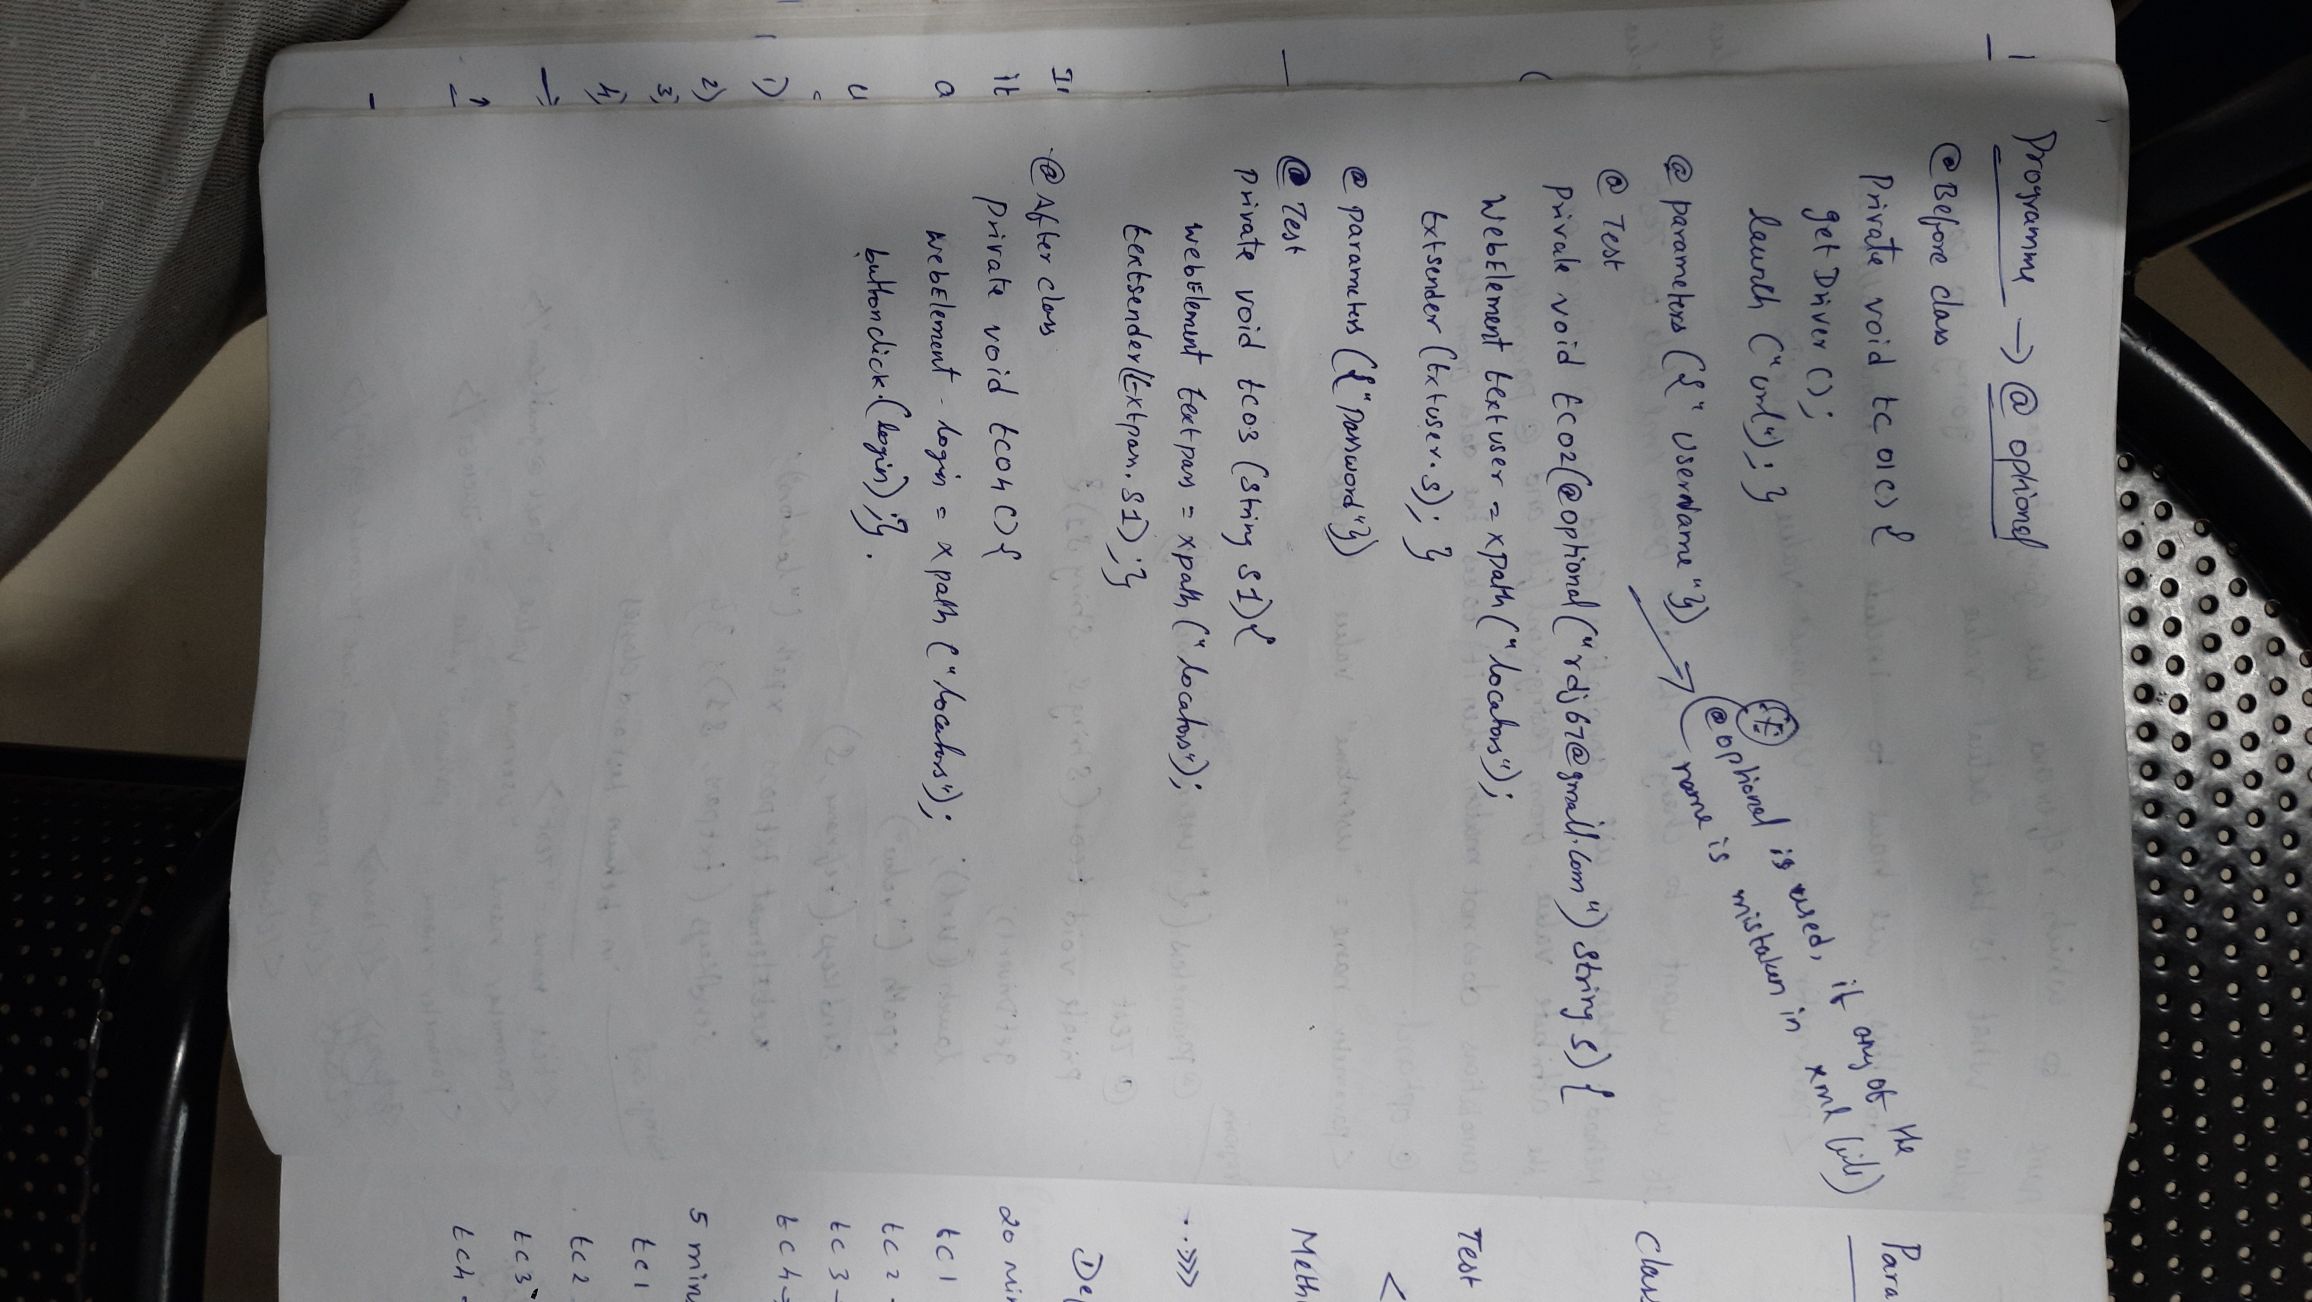 Programme → @optional
@Before class
Private void tc01() {
getDriver();
launch ("url"); }
@parameters ({"Username"})
@optional is used, if any of the
name is mistaken in xml
@Test
Private void tc02(@optional("rdj67@gmail.com") String s) {
WebElement textuser = xpath ("locators");
txtsender (txtuser.s); }
@parameters ({"Password"})
@Test
private void tc03 (String s1) {
webElement textpass = xpath ("locators");
textsender(txtpass.s1); }
@After class
Private void tc04() {
WebElement login = xpath ("locators");
button click.(login); }.
It
a
1)
2)
3)
4)
Para
Class
Test
<
Meth
De
20 min
tc1
tc2
tc3
tc4
5 mins
tc1
tc2
tc3
tc4